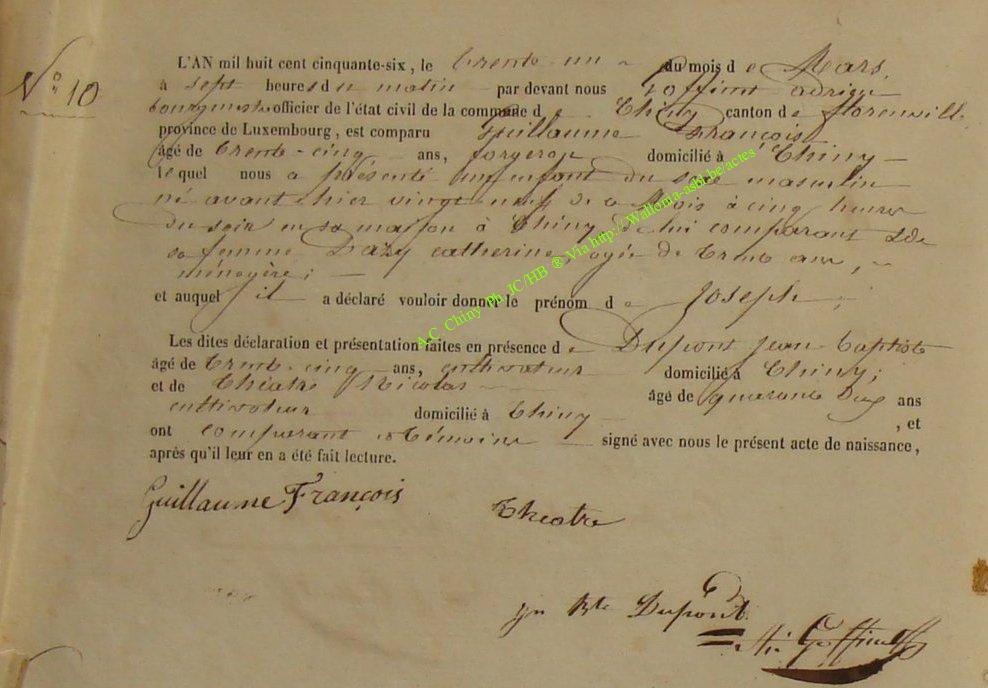 N° 10
L'AN mil huit cent cinquante-six, le trente un du mois de Mars,
à sept heures du matin par devant nous Goffinet adrien
bourgmestre officier de l'état civil de la commune de Chiny canton de florenville
province de Luxembourg, est comparu Guillaume François
âgé de trente-cinq ans, forgeron domicilié à Chiny
lequel nous a présenté un enfant du sexe masculin
né avant hier vingt neuf de ce Mois à cinq heures
du soir en sa maison à Chiny de lui comparant & de
sa femme Dazy catherine, agée de trente ans,
ménagère;
et auquel il a déclaré vouloir donner le prénom de Joseph;
Les dites déclaration et présentation faites en présence de Dupont jean baptiste
âgé de trente-cinq ans, cultivateur domicilié à Chiny;
et de Théatre Nicolas âgé de quarante deux ans
cultivateur domicilié à Chiny, et
ont comparant & témoins signé avec nous le présent acte de naissance,
après qu'il leur en a été fait lecture.
Guillaume François
Theatre
jn Bte Dupont
Goffinet
A.C. Chiny Ph JC/HB ® Via http://Wallonia-asbl.be/actes